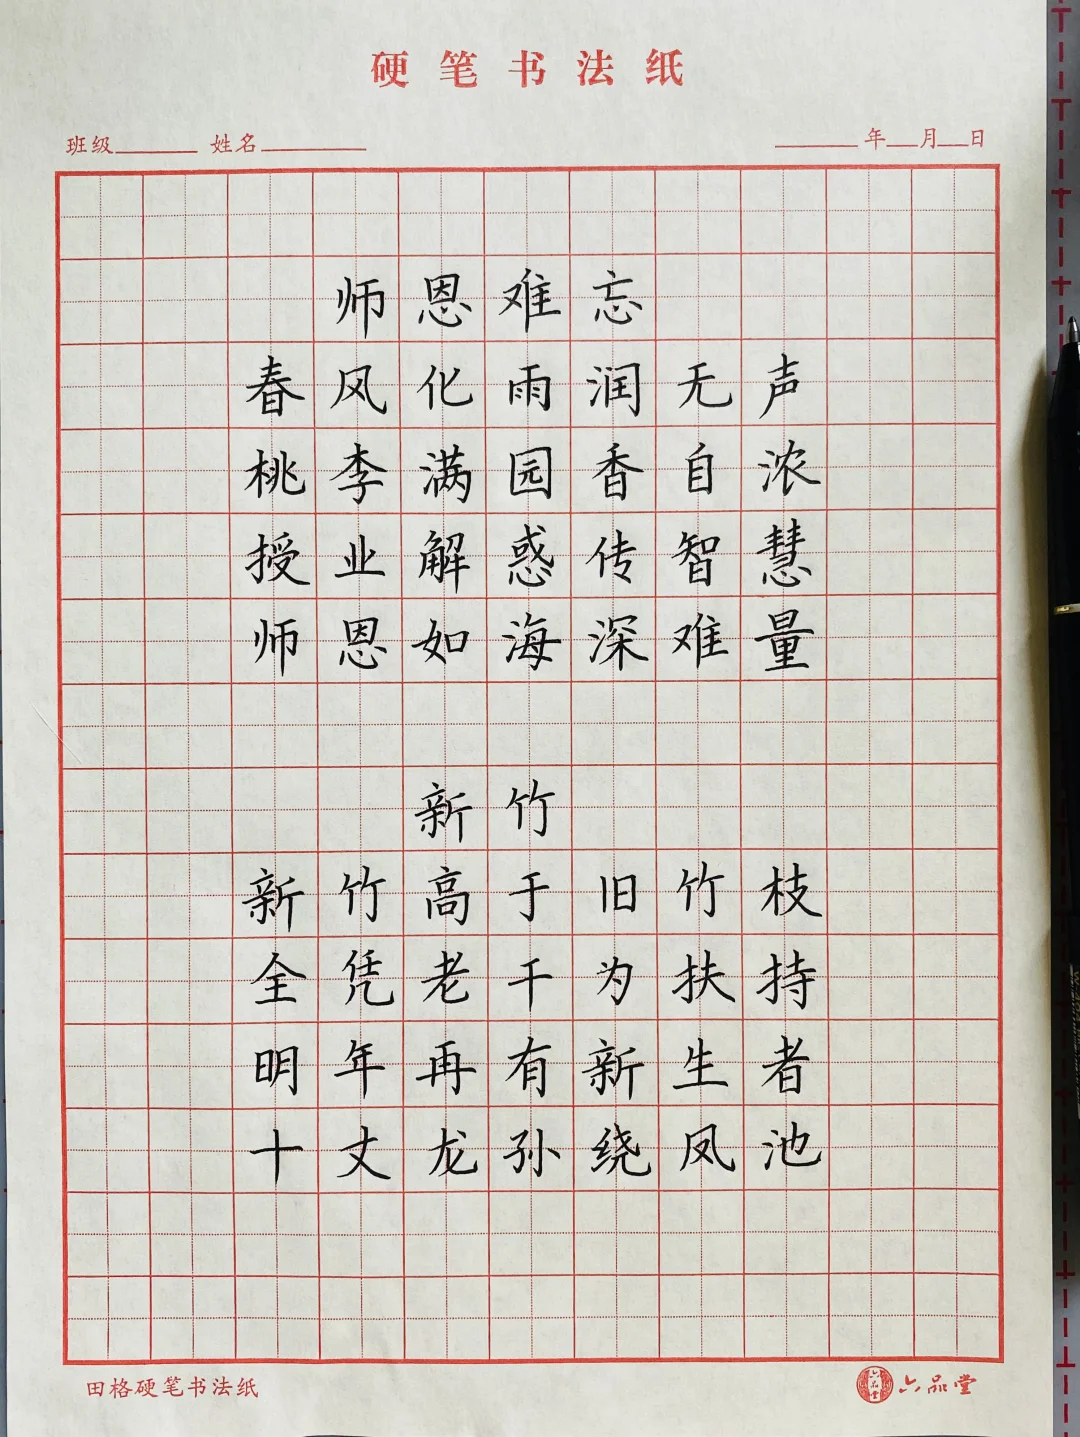 硬笔书法纸
班级 姓名 年 月 日
师恩难忘
春风化雨润无声
桃李满园香自浓
授业解惑传智慧
师恩如海深难量
新竹
新竹高于旧竹枝
全凭老干为扶持
明年再有新生者
十丈龙孙绕凤池
田格硬笔书法纸
六品堂
六品堂